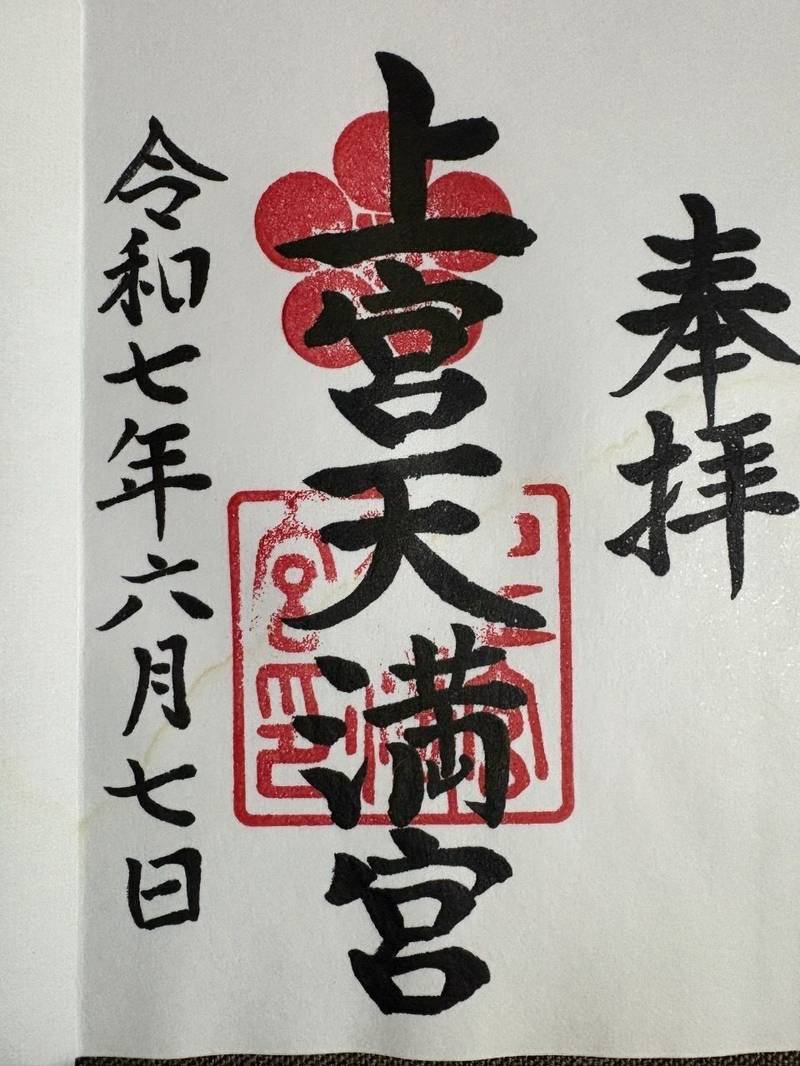 奉拝
上宮天満宮
令和七年六月七日